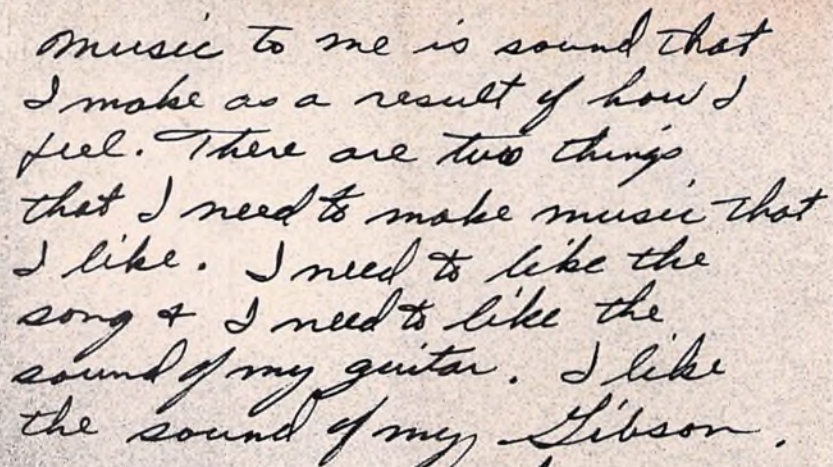 Music to me is sound that
I make as a result of how I
feel. There are two things
that I need to make music that
I like. I need to like the
song & I need to like the
sound of my guitar. I like
the sound of my Gibson.